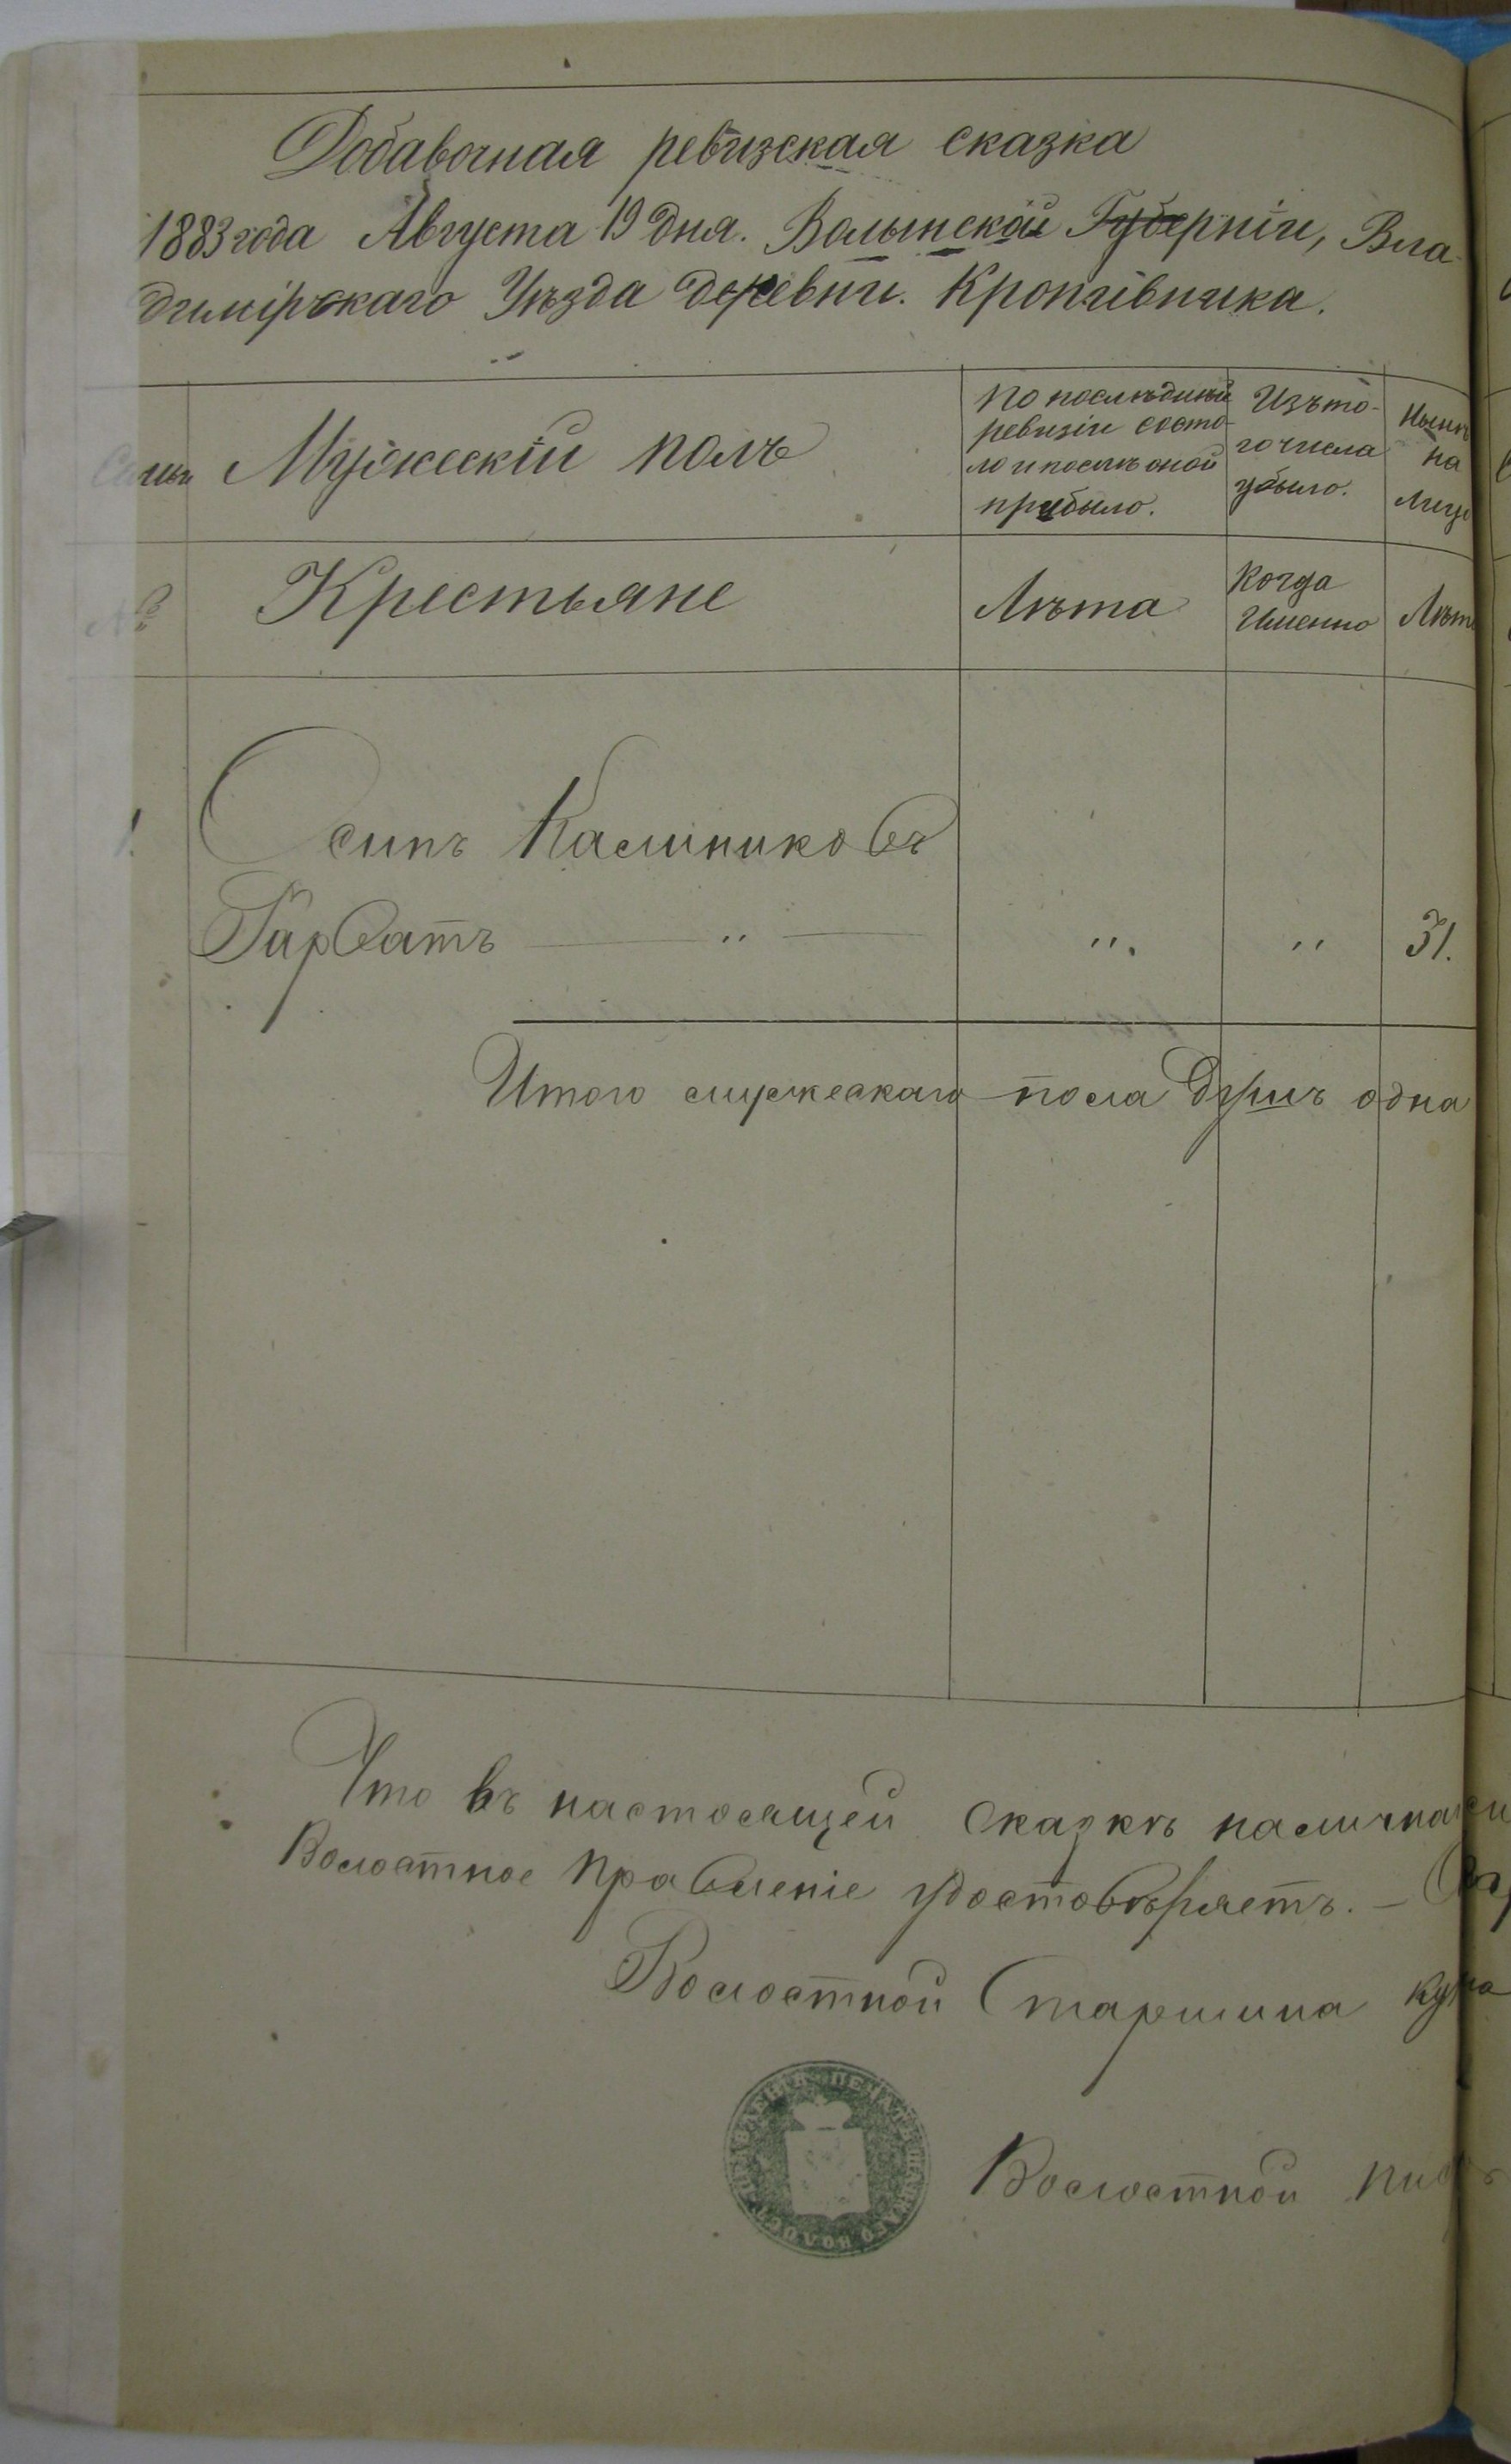 Добавочная ревизская сказка
1883 года Августа 19 дня. Волынской Губерніи, Вла-
димірскаго Уѣзда деревни. Кропивника.
Мужескій полъ
По послѣдней
ревизіи состо-
ло и послѣ оной
прибыло.
Изъ то-
го числа
убыло.
Нынѣ
на
Лицо
№
Крестьяне
Лѣта
Когда
Именно
Лѣта
1.
Осипъ Калиниковъ
Гарбатъ — " — ". " 31.
Итого мужескаго пола душъ одна
Что въ настоящей сказкѣ налична
Волостное Правленіе удостовѣряетъ. —
Волостной Старшина
Волостной
ПРАВЛЕНІЯ ПЕЧАТЬ ВОЛОСТ